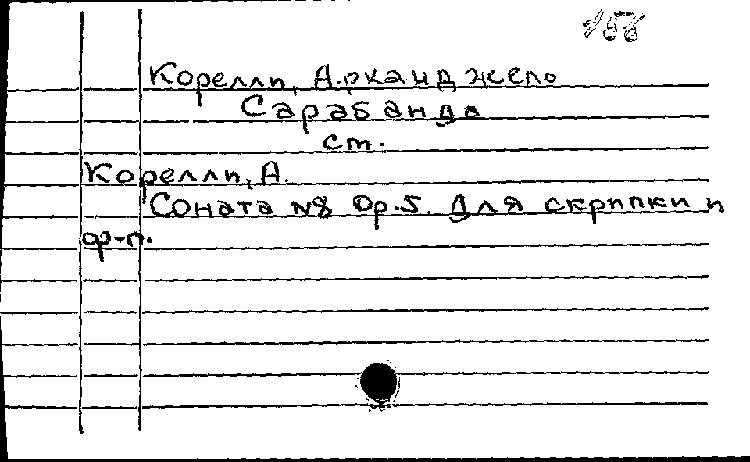 Корелли, Арканджело
Сарабанда
ст.
Корелли, А.
Соната №8 Op.5. Для скрипки и
ф-п.